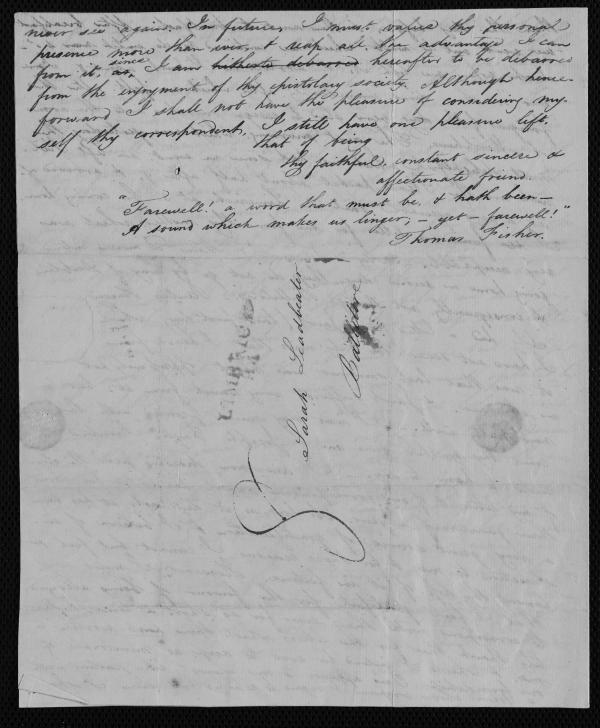 never see again. In future, I must value thy personal
presence more than ever, & reap all the advantage I can
from it, as since I am hitherto debarred hereafter to be debarred
from the enjoyment of thy epistolary society. Although hence-
forward I shall not have the pleasure of considering my-
self thy correspondent, I still have one pleasure left,
that of being
thy faithful, constant sincere &
affectionate friend.
"Farewell! a word that must be, & hath been—
A sound which makes us linger, — yet — farewell!"
Thomas Fisher.
LIMERICK
Sarah Leadbeater
Ballitore